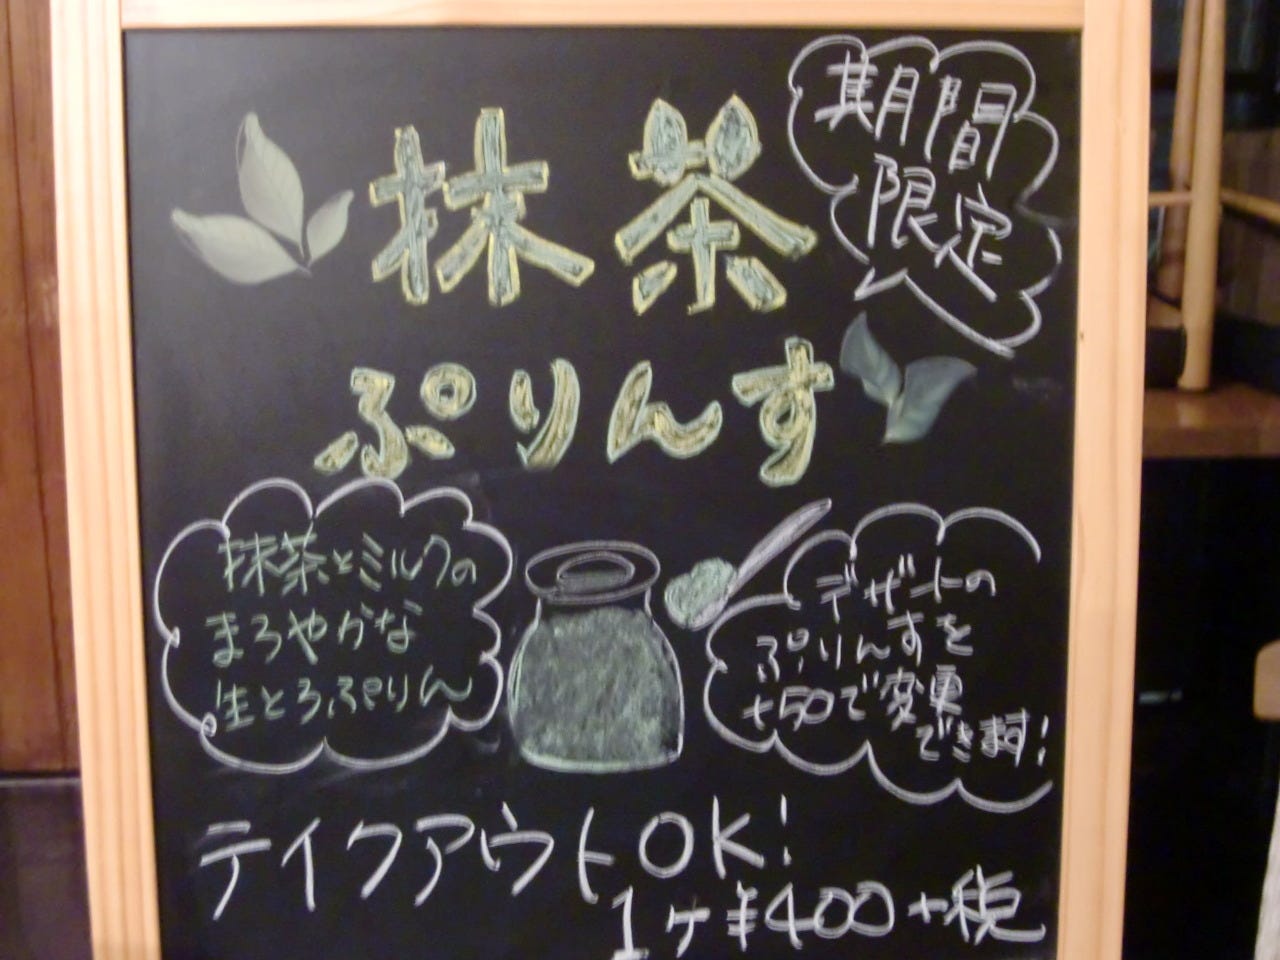 期間
限定
抹茶
ぷりんす
抹茶とミルクの
まろやかな
生とろぷりん
デザートの
ぷりんすを
+50で変更
できます!
テイクアウトOK!
1ヶ¥400+税